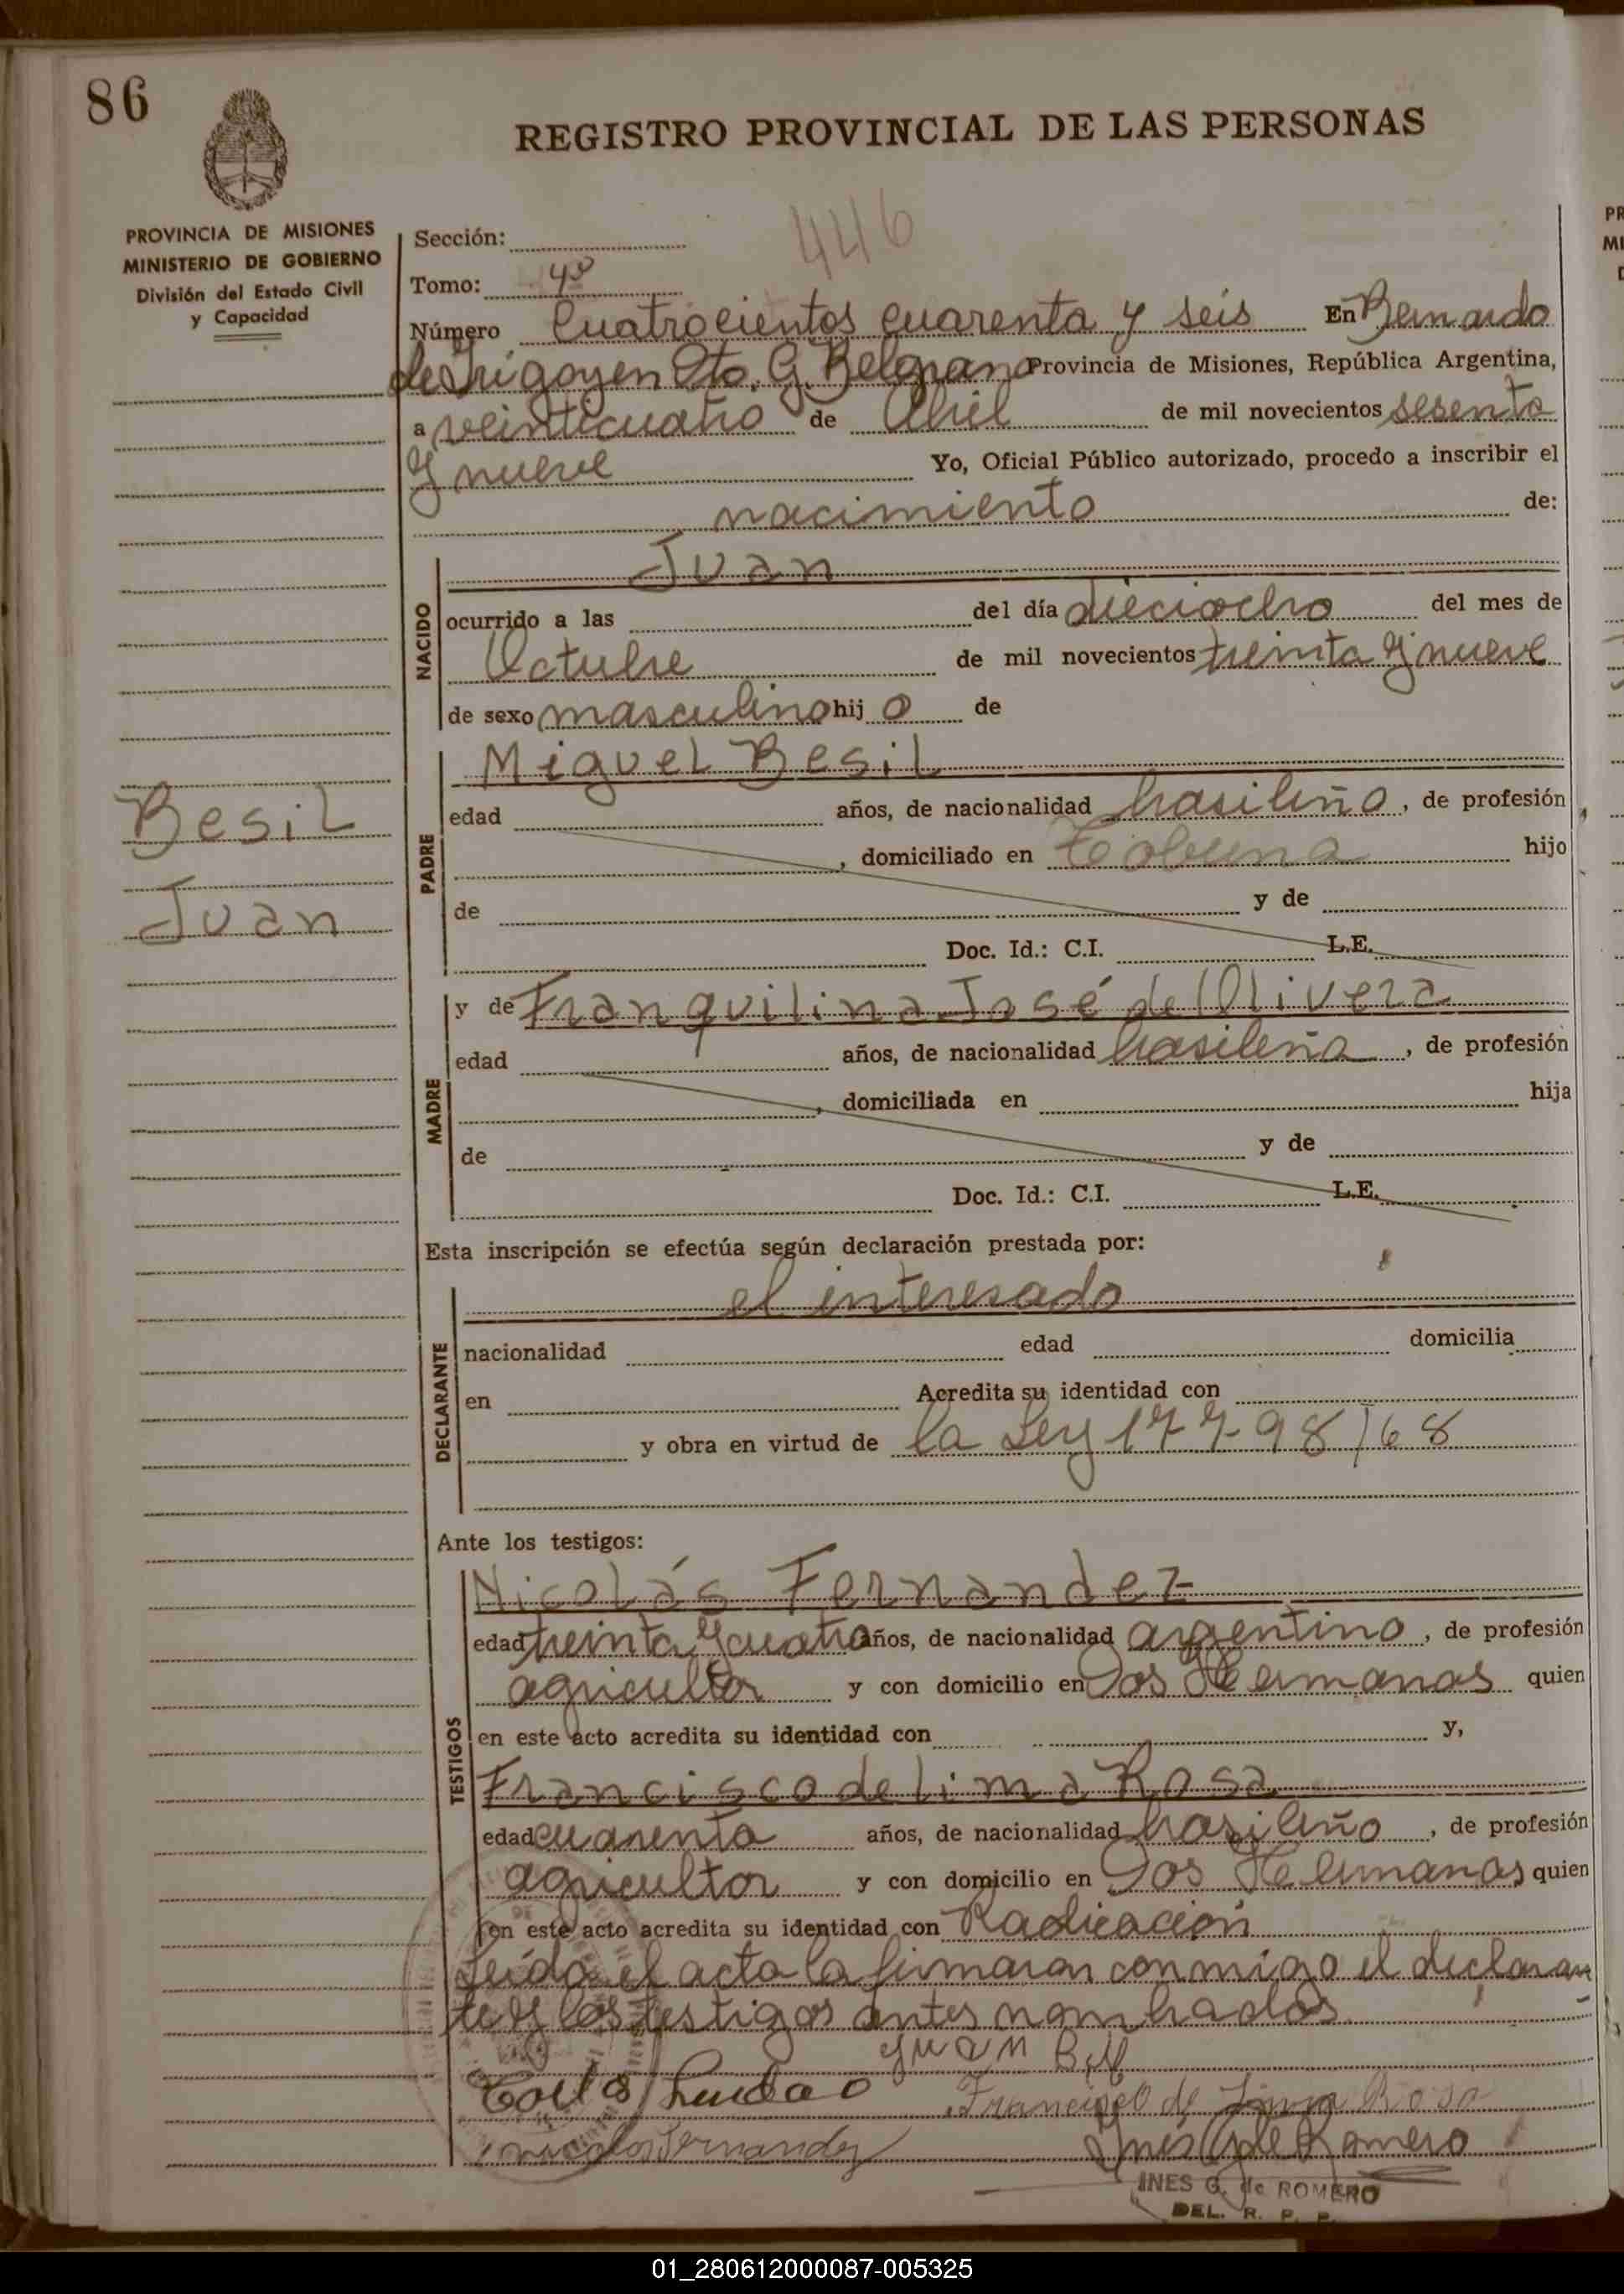 86
REGISTRO PROVINCIAL DE LAS PERSONAS
PROVINCIA DE MISIONES
MINISTERIO DE GOBIERNO
División del Estado Civil
y Capacidad
446
Sección:
Tomo: 4º
Número Cuatrocientos cuarenta y seis En Bernardo
de Irigoyen Dto. G. Belgrano Provincia de Misiones, República Argentina,
a veinticuatro de Abril de mil novecientos sesenta
y nueve Yo, Oficial Público autorizado, procedo a inscribir el
nacimiento de:
NACIDO
Juan
ocurrido a las del día dieciocho del mes de
Octubre de mil novecientos treinta y nueve
de sexo masculino hijo de
PADRE
Miguel Besil
edad años, de nacionalidad brasileño, de profesión
, domiciliado en Tobuna hijo
de y de
Doc. Id.: C.I. L.E.
Besil
Juan
MADRE
y de Franquilina José de Olivera
edad años, de nacionalidad brasileña, de profesión
, domiciliada en hija
de y de
Doc. Id.: C.I. L.E.
Esta inscripción se efectúa según declaración prestada por:
DECLARANTE
el interesado
nacionalidad edad domicilia
en Acredita su identidad con
y obra en virtud de la Ley 177-98/68
Ante los testigos:
TESTIGOS
Nicolás Fernandez
edad treinta y cuatro años, de nacionalidad argentino, de profesión
agricultor y con domicilio en Dos Hermanas quien
en este acto acredita su identidad con y,
Francisco de Lima Rosa
edad cuarenta años, de nacionalidad brasileño, de profesión
agricultor y con domicilio en Dos Hermanas quien
en este acto acredita su identidad con Radicación
Leída el acta la firmaran conmigo el declaran
te y los testigos antes nombrados.
Juan
Francisco de Lima Rosa
Nicolas Fernandez
Ines G de Romero
INES G. de ROMERO
DEL. R. P. P.
01_280612000087-005325